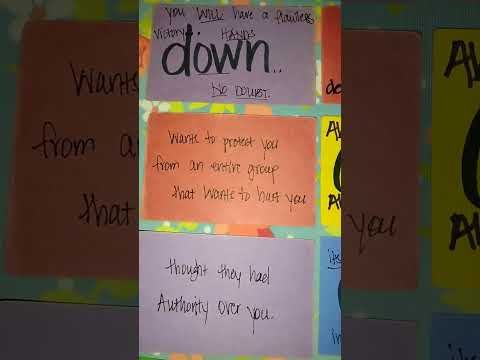 you WILL have a flawless
victory. HANDS
down..
NO DOUBT.
Wants to protect you
from an entire group
that wants to hurt you
thought they had
Authority over you.